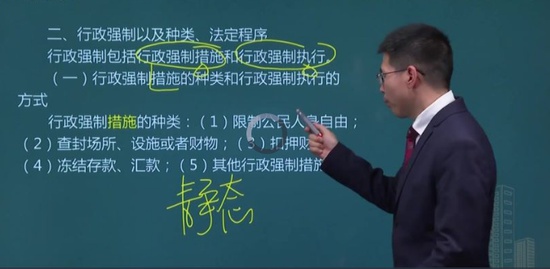 二、行政强制以及种类、法定程序
行政强制包括行政强制措施和行政强制执行。
（一）行政强制措施的种类和行政强制执行的
方式
行政强制措施的种类：（1）限制公民人身自由；
（2）查封场所、设施或者财物；（3）扣押财
（4）冻结存款、汇款；（5）其他行政强制措施
静态